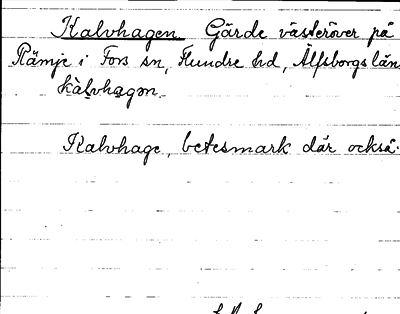 Kalvhagen Gärde västeröver på
Rämje i Fors sn, Flundre hd, Älfsborgs län.
kàlvhagən
Kalvhage, betesmark där också.